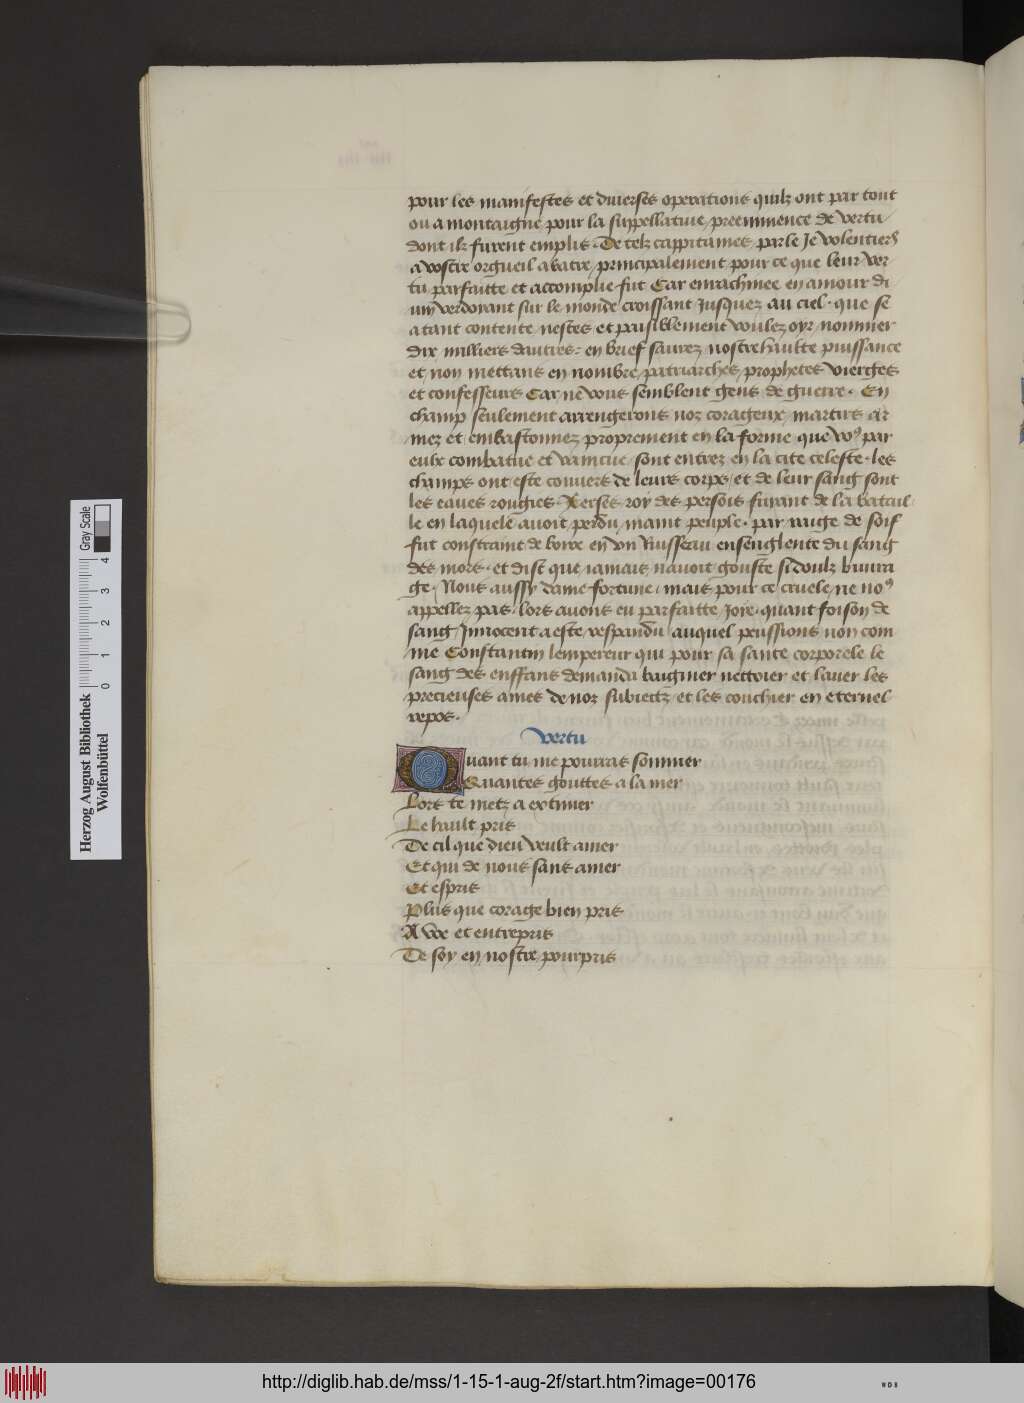 pour les manifestes et diuerses operations quilz ont par tout
ou a montaigne pour la suppellatiue preeminence de vertu
dont ilz furent emplis. De telz cappitaines parle Je volentiers
a vostre orgueil abatre principalement pour ce que leur ver
tu parfaitte et accomplie fut Car enrachinee en amour di
uin verdoyant sur le monde croissant Jusquez au ciel. que se
atant contente nestes et paisiblement voulez oyr nommer
dix milliers dautres. en brief saurez nostre haulte puissance
et non mettans en nombre patriarches prophetes vierges
et confesseurs Car ne vous semblent gens de guerre. En
champ seulement arrengerons noz corageux martirs ar
mez et embastonnez proprement en la forme que vo9 par
eulx combatue et vaincue sont entrez en la cite celeste. les
champs ont este couuers de leurs corps et de leur sang sont
les eaues rougies. Xerses roy des persois fuyant de la batail
le en laquele auoit perdu maint peuple. par rage de soif
fut constraint de boire en vn Ruisseau ensenglente du sang
des mors. et dist que iamais nauoit gouste si doulz buura
ge. Nous aussy dame fortune. mais pour ce cruele ne no9
appellez pas. lors auons eu parfaitte Joye. quant foison de
sang Jnnocent a este respandu auquel peussions non com
me Constantin lempereur qui pour sa sante corporele le
sang des enffans demanda baignier nettoier et lauer les
precieuses ames de noz subiectz et les couchier en eternel
repos.
vertu
Quant tu me pourras sommer
Quantes gouttes a la mer
Lors te metz a extimer
Le hault pris
De cil que dieu veult amer
Et qui de nous sans amer
Est espris
Plus que corage bien pris
A voe et entrepris
De soy en nostre pourpris
Herzog August Bibliothek
Wolfenbüttel
0 1 2 3 4
Gray Scale
http://diglib.hab.de/mss/1-15-1-aug-2f/start.htm?image=00176